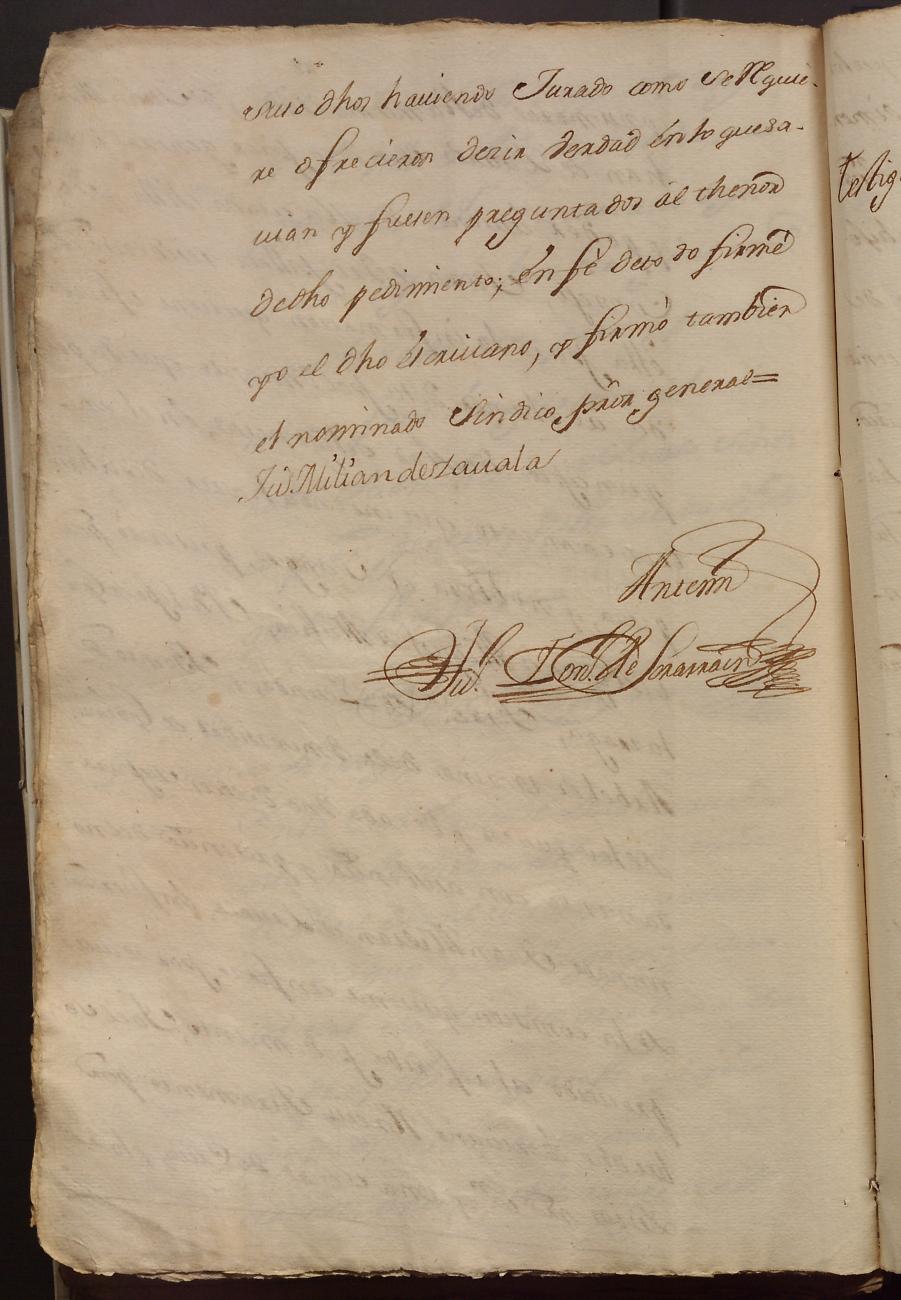 suso dhos haviendo Jurado como se Requie-
re ofrecieron dezir verdad en lo que sa-
uian y fuesen preguntados al thenor
de dho pedimiento; en fè de to do firmè
yo el dho escriuano, y firmò tambien
el nominado Sindico prôr general =
Jũ. Milian de Zauala
Antemi
Testig